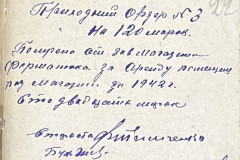 22
Приходный Ордер № 3
На 120 марок.
Получено от зав магазина
за Аренду помещения
под магазин за 1942 г.
Сто двадцать марок
Староста
Бухг